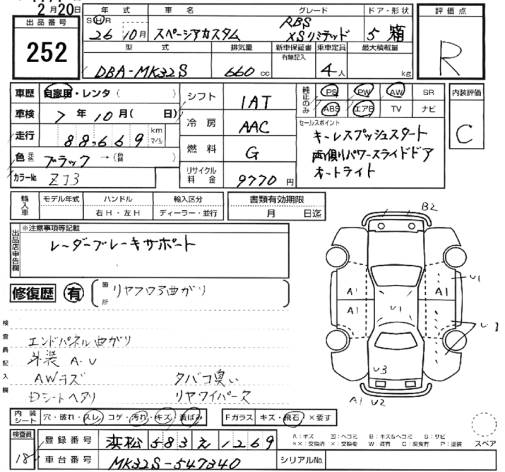 2月20日
出品番号
252
年式 車名 グレード ドア・形状
S・H 26年 10月 スペーシアカスタム RBS XSリミテッド 5 箱
型式 排気量 新車保証書 有無記入 乗車定員 最大積載量
DBA-MK32S 660cc 4人 kg
評価点
R
車歴 自家用・レンタ( )
車検 7年 10月( 日)
走行 88,669 km マイル
色 ブラック→( )
カラーNo. ZJ3
シフト 1AT
冷房 AAC
燃料 G
リサイクル料金 9770円
純正のみ PS PW AW SR
ABS エアB TV ナビ
セールスポイント
キーレスプッシュスタート
両側パワースライドドア
オートライト
内装評価
C
輸入車 モデル年式 ハンドル 輸入区分
右H・左H ディーラー・並行
書類有効期限
月 日迄
出品店申告欄
※注意事項等記載
レーダーブレーキサポート
修復歴 有 箇所 リヤフロア曲がり
検査員記入欄
エンドパネル曲がり
外装 A・U
AWキズ タバコ臭い
Dシートヘタリ リヤワイパーズ
B2
A1 A1 U1
V1
U1
U3
A1 U2
内装シート 穴・破れ・スレ コゲ・汚れ・キズ・黄ばみ
Fガラス キズ・飛石 ×要す
スペア
検査員
18
登録番号 浜松 583 え 1269
車台番号 MK32S-547340
シリアルNo.